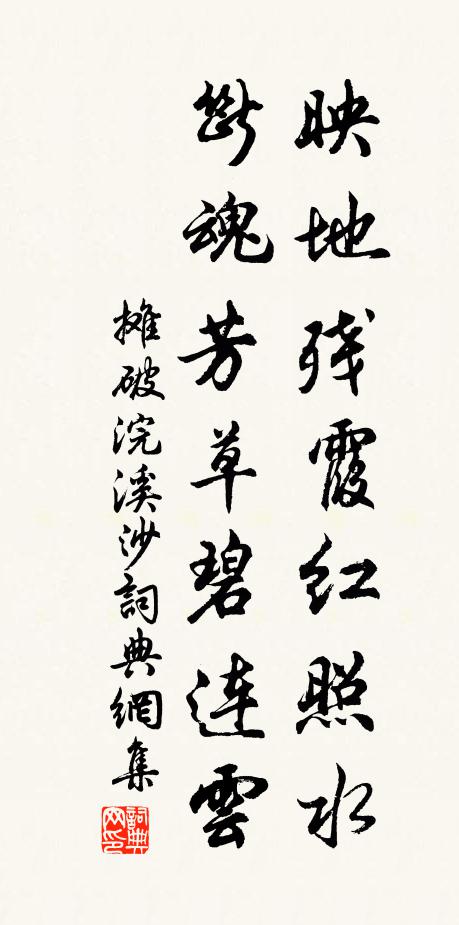 映地残霞红照水
断魂芳草碧连雲
攤破浣溪沙詞典網集
詞典网印